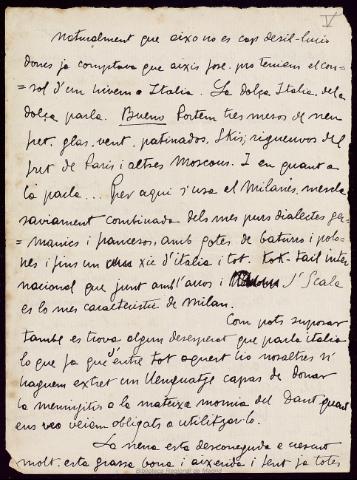 V
naturalment que aixo no es cap desil-lusio
doncs ja comptava que aixis fore. pro teniem el con-
=sol d'un hivern a Italia. La dolça Italia. de la
dolça parla. Bueno Portem tres mesos de neu
fret. glas. vent. patinados. Skis; rigueuvos del
fret de Paris i altres Moscous. I en quant a
la parla... Per aqui s'usa el Milanes, mescla
saviament combinada dels mes purs dialectes ger-
=manics i francesos, amb gotes de baturro i polo-
=nes i fins un xic d'italia i tot. tot. fait inter
nacional que junt amb l'arros i l'Scala
es lo mes caracteristic de Milan.
Com pots suposar
tambe es trova algun desesperat que parla italia
lo que fa que d'entre tot aquest lio nosaltres si
haguem extret un llenguatge capas de donar
la meningitis a la mateixa momia del Dant quant
ens veo veiem obligats a utilitzar-lo.
La nena esta desconeguda e creixent
molt. esta grassa bona i aixerida i fent ja totes
Biblioteca Regional de Madrid